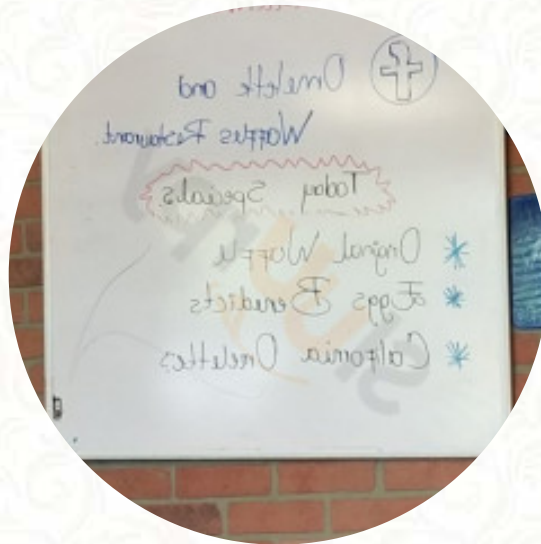 Omelette and
Waffles Restaurant.
Today Specials
* Original Waffle
* Eggs Benedicts
* California Omelettes